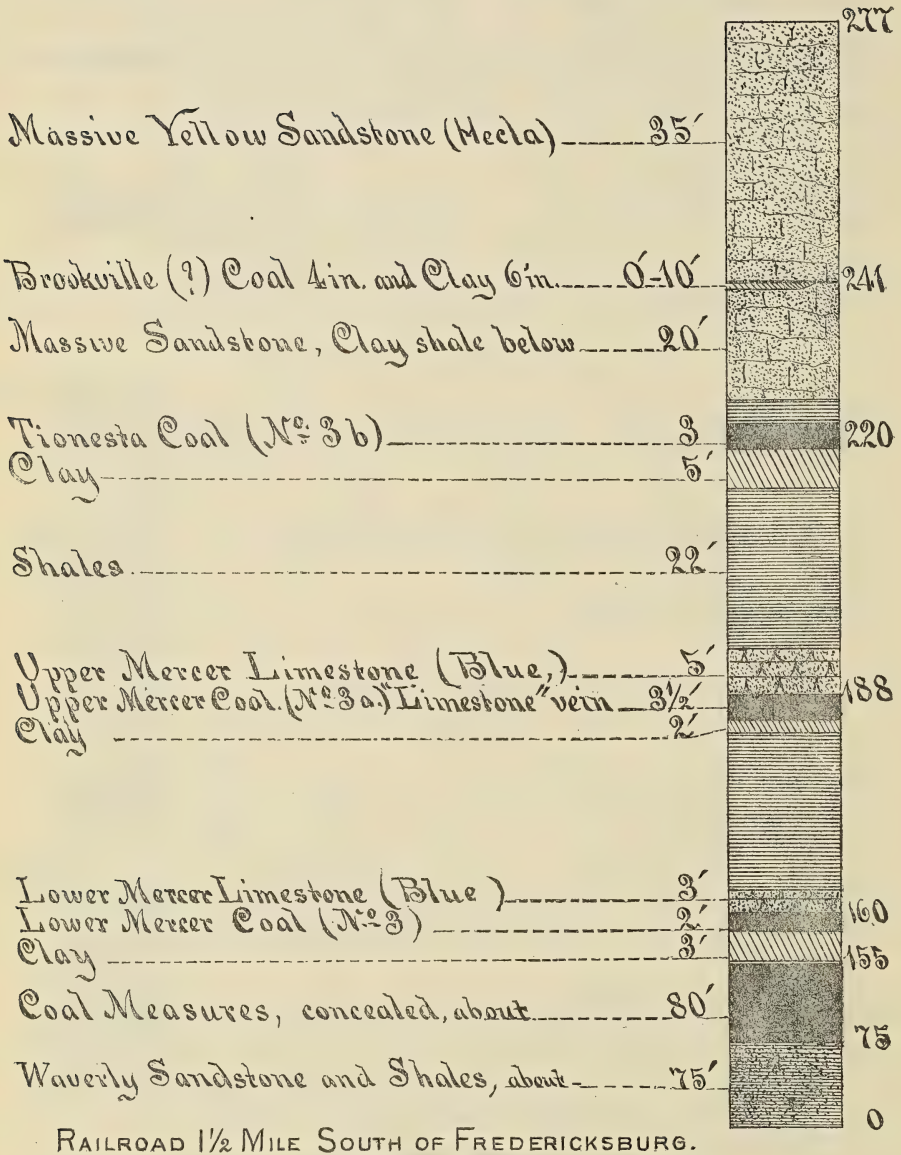 277
Massive Yellow Sandstone (Hecla) 35′
Brookville (?) Coal 4 in. and Clay 6 in. 0′-10′ 241
Massive Sandstone, Clay shale below 20′
Tionesta Coal (No. 3 b) 3 220
Clay 5′
Shales 22′
Upper Mercer Limestone (Blue,) 5′
Upper Mercer Coal. (No. 3 a.) "Limestone" vein 3½′ 188
Clay 2′
Lower Mercer Limestone (Blue) 3′
Lower Mercer Coal (No. 3) 2′ 160
Clay 3′ 155
Coal Measures, concealed, about 80′
75
Waverly Sandstone and Shales, about 75′
0
RAILROAD 1½ MILE SOUTH OF FREDERICKSBURG.